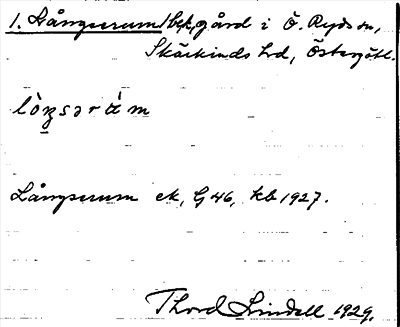 1. Långserum, bek, gård i Ö. Ryds sn,
Skärkinds hd, Östergötl.
lòŋsərùm
Långserum ek, G 46, kb 1927.
Thord Lindell 1929.